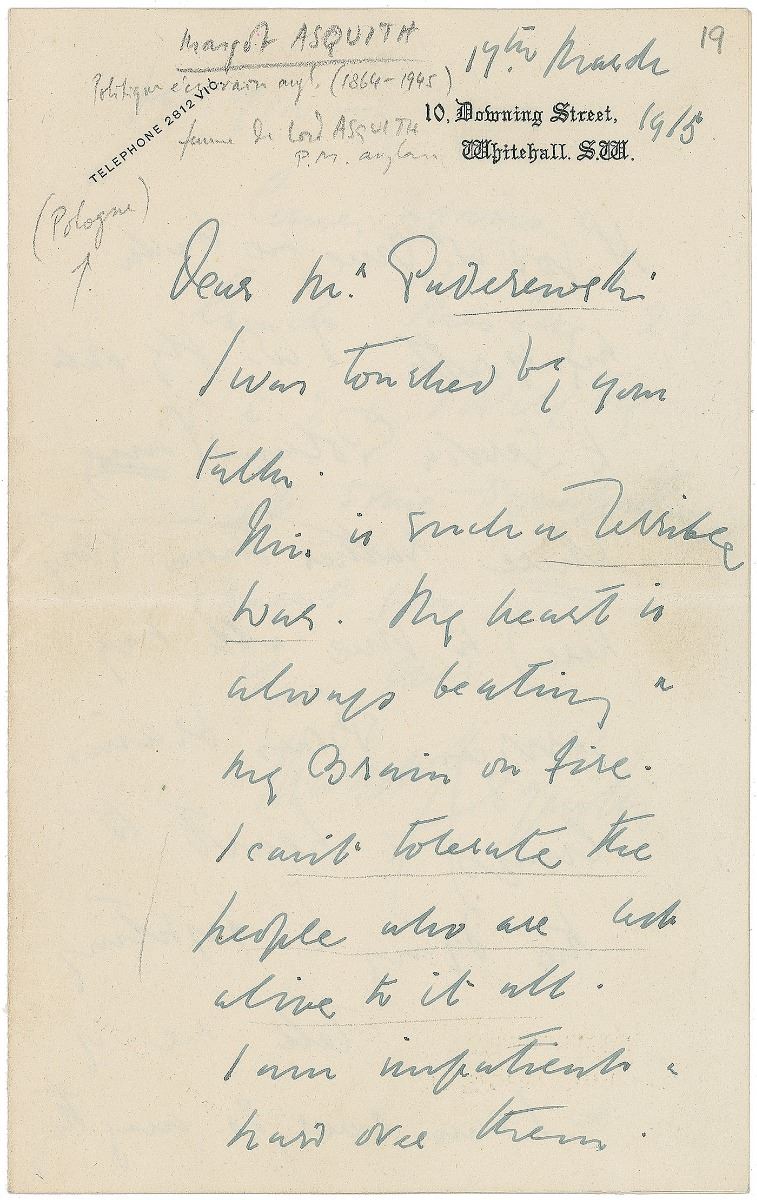 19
Margot ASQUITH
Politique écrivain angl. (1864-1945)
femme de Lord ASQUITH
P.M. anglais
(Pologne)
TELEPHONE 2812 VIC.
17th March
1915
10, Downing Street,
Whitehall. S.W.
Dear Mr Paderewski
I was touched by your
talk.
This is such a terrible
war. My heart is
always beating &
my Brain on fire.
I can't tolerate the
people who are not
alive to it all.
I am impatient &
hard over them.